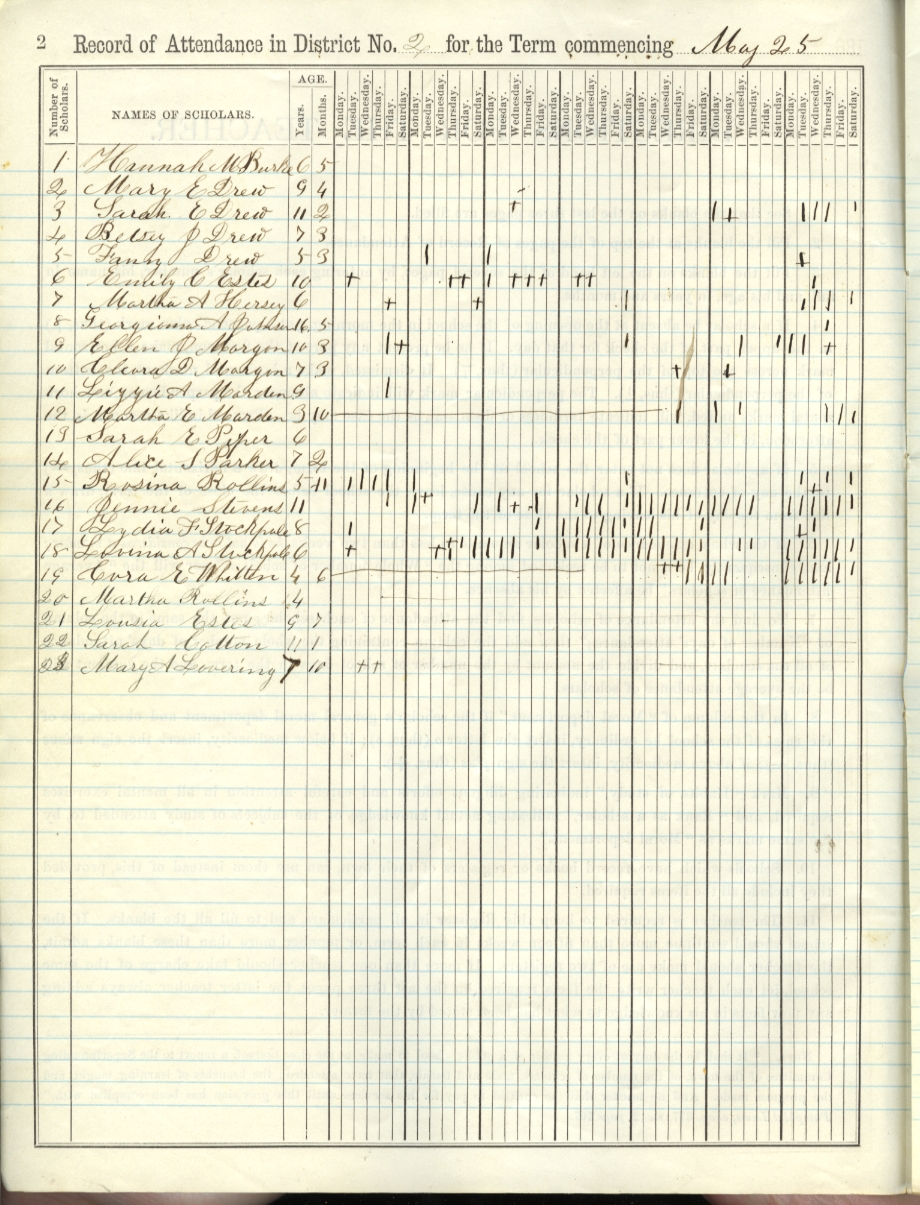 2 Record of Attendance in District No. 2 for the Term commencing May 25
Number of Scholars. NAMES OF SCHOLARS. AGE. Years. Months. Monday. Tuesday. Wednesday. Thursday. Friday. Saturday. Monday. Tuesday. Wednesday. Thursday. Friday. Saturday. Monday. Tuesday. Wednesday. Thursday. Friday. Saturday. Monday. Tuesday. Wednesday. Thursday. Friday. Saturday. Monday. Tuesday. Wednesday. Thursday. Friday. Saturday. Monday. Tuesday. Wednesday. Thursday. Friday. Saturday. Monday. Tuesday. Wednesday. Thursday. Friday. Saturday.
1 Hannah M Burke 6 5
2 Mary E Drew 9 4
3 Sarah E Drew 11 2
4 Betsey J Drew 7 3
5 Fanny Drew 5 3
6 Emily C Estes 10
7 Martha A Hersey 6
8 Georgianna A 16 5
9 Ellen J Morgan 10 3
10 Clara D Morgan 7 3
11 Lizzie A Marden 9
12 Martha E Marden 3 10
13 Sarah E Piper 6
14 Alice S Parker 7 2
15 Rosina Rollins 5 11
16 Jennie Stevens 11
17 Lydia F Stockpole 8
18 Lovina A Stockpole 6
19 Cora E Whitten 4 6
20 Martha Rollins 4
21 Lousia Estes 9 7
22 Sarah Cotton 11 1
23 Mary A Lovering 7 10